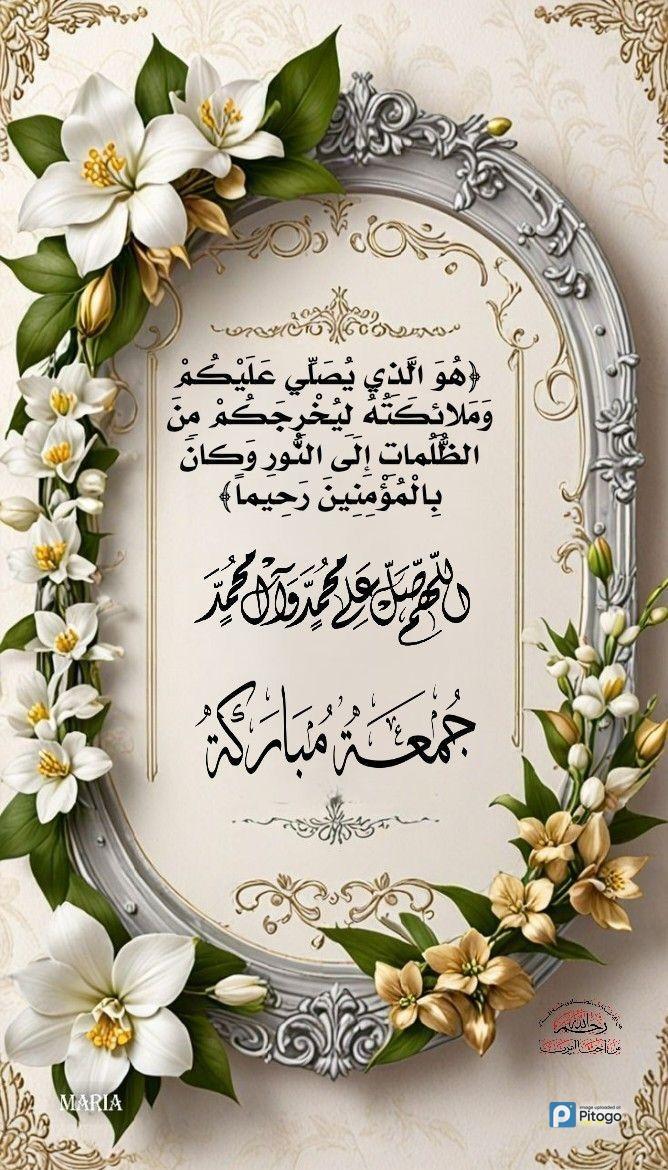 ﴿هُوَ الَّذِي يُصَلِّي عَلَيْكُمْ
وَمَلائِكَتُهُ لِيُخْرِجَكُمْ مِنَ
الظُّلُمَاتِ إِلَى النُّورِ وَكَانَ
بِالْمُؤْمِنِينَ رَحِيماً﴾
اللّهم صَلِّ عَلى مُحمَّدٍ وَآلِ مُحمَّدٍ
جُمعَةٌ مُبَارَكَةٌ
رحم الله
MARIA
image uploaded at
Pitogo